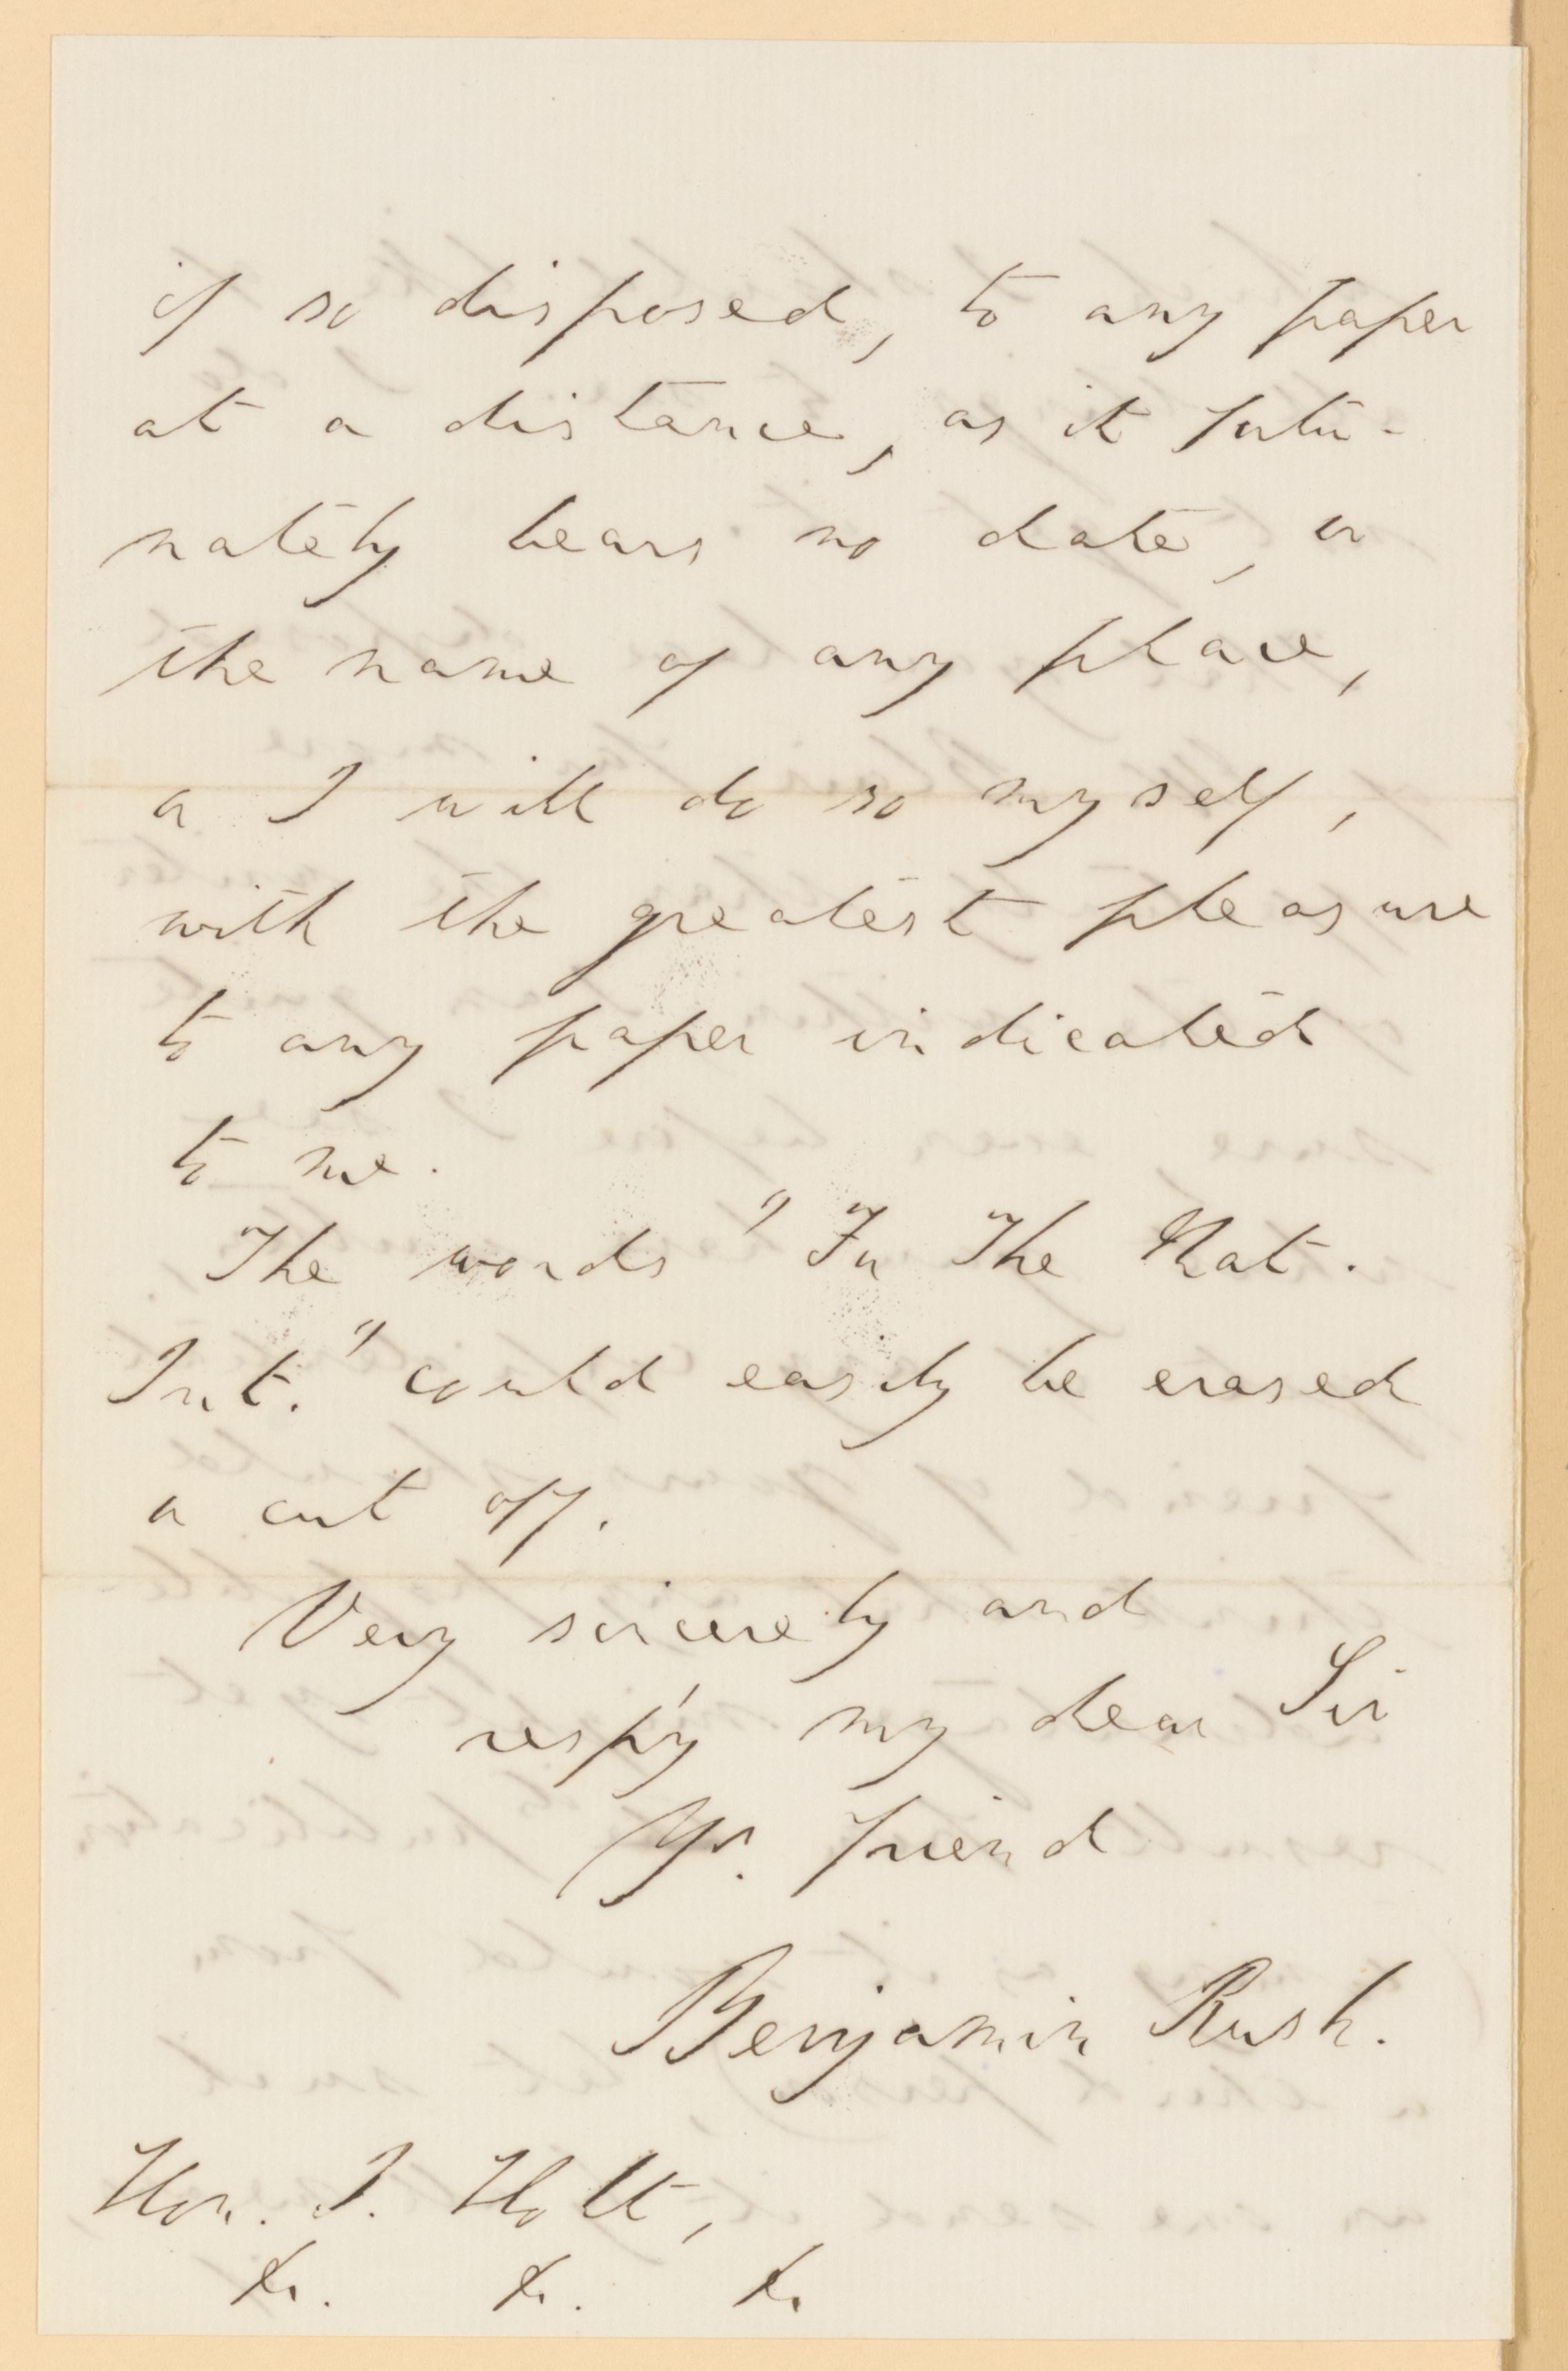 if so disposed, to any paper
at a distance, as it fortu-
nately bears no date, or
the name of any place,
or I will do so myself,
with the greatest pleasure
to any paper indicated
to me.
The words "For The Nat.
Int." could easily be erased
or cut off.
Very sincerely and
resp'y my dear Sir
Yr. friend
Benjamin Rush.
Hon. J. Holt,
&c. &c. &c